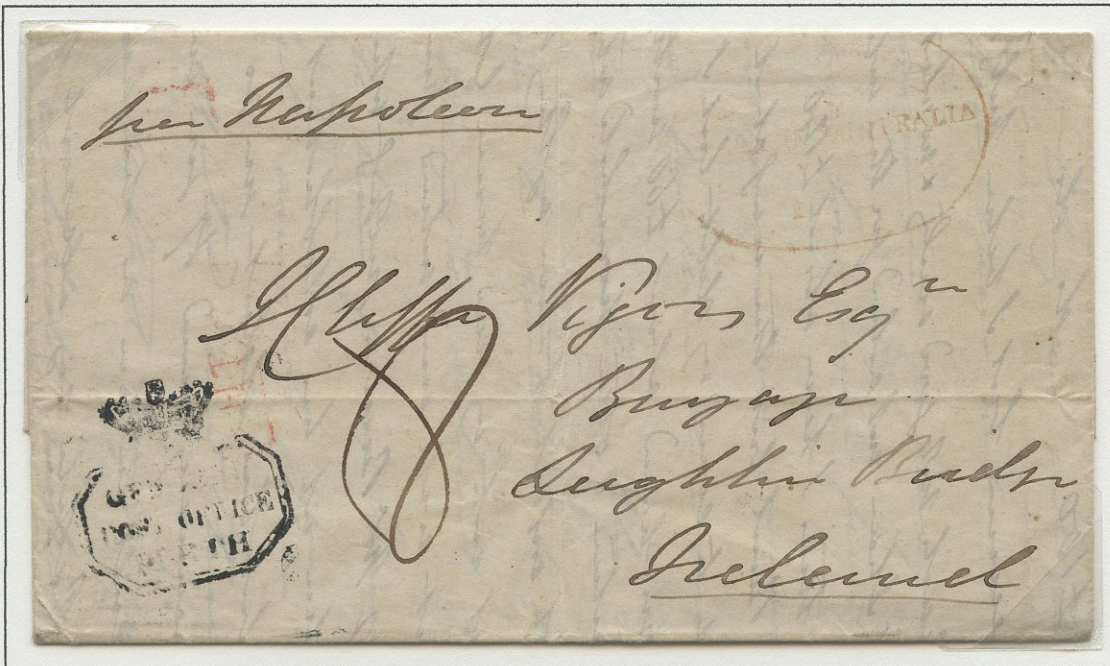 per Napoleon
TRALIA
Cliffe Vigors Esqre
8
Burgage
Leighlin Bridge
Ireland
GENERAL
POST OFFICE
PERTH